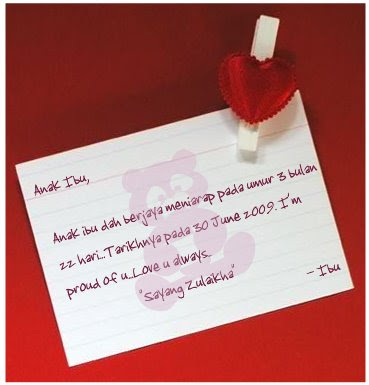 Anak Ibu,
Anak ibu dah berjaya meniarap pada umur 3 bulan
22 hari..Tarikhnya pada 30 June 2009. I'm
proud of u..Love u always..
"Sayang Zulaikha"
- Ibu